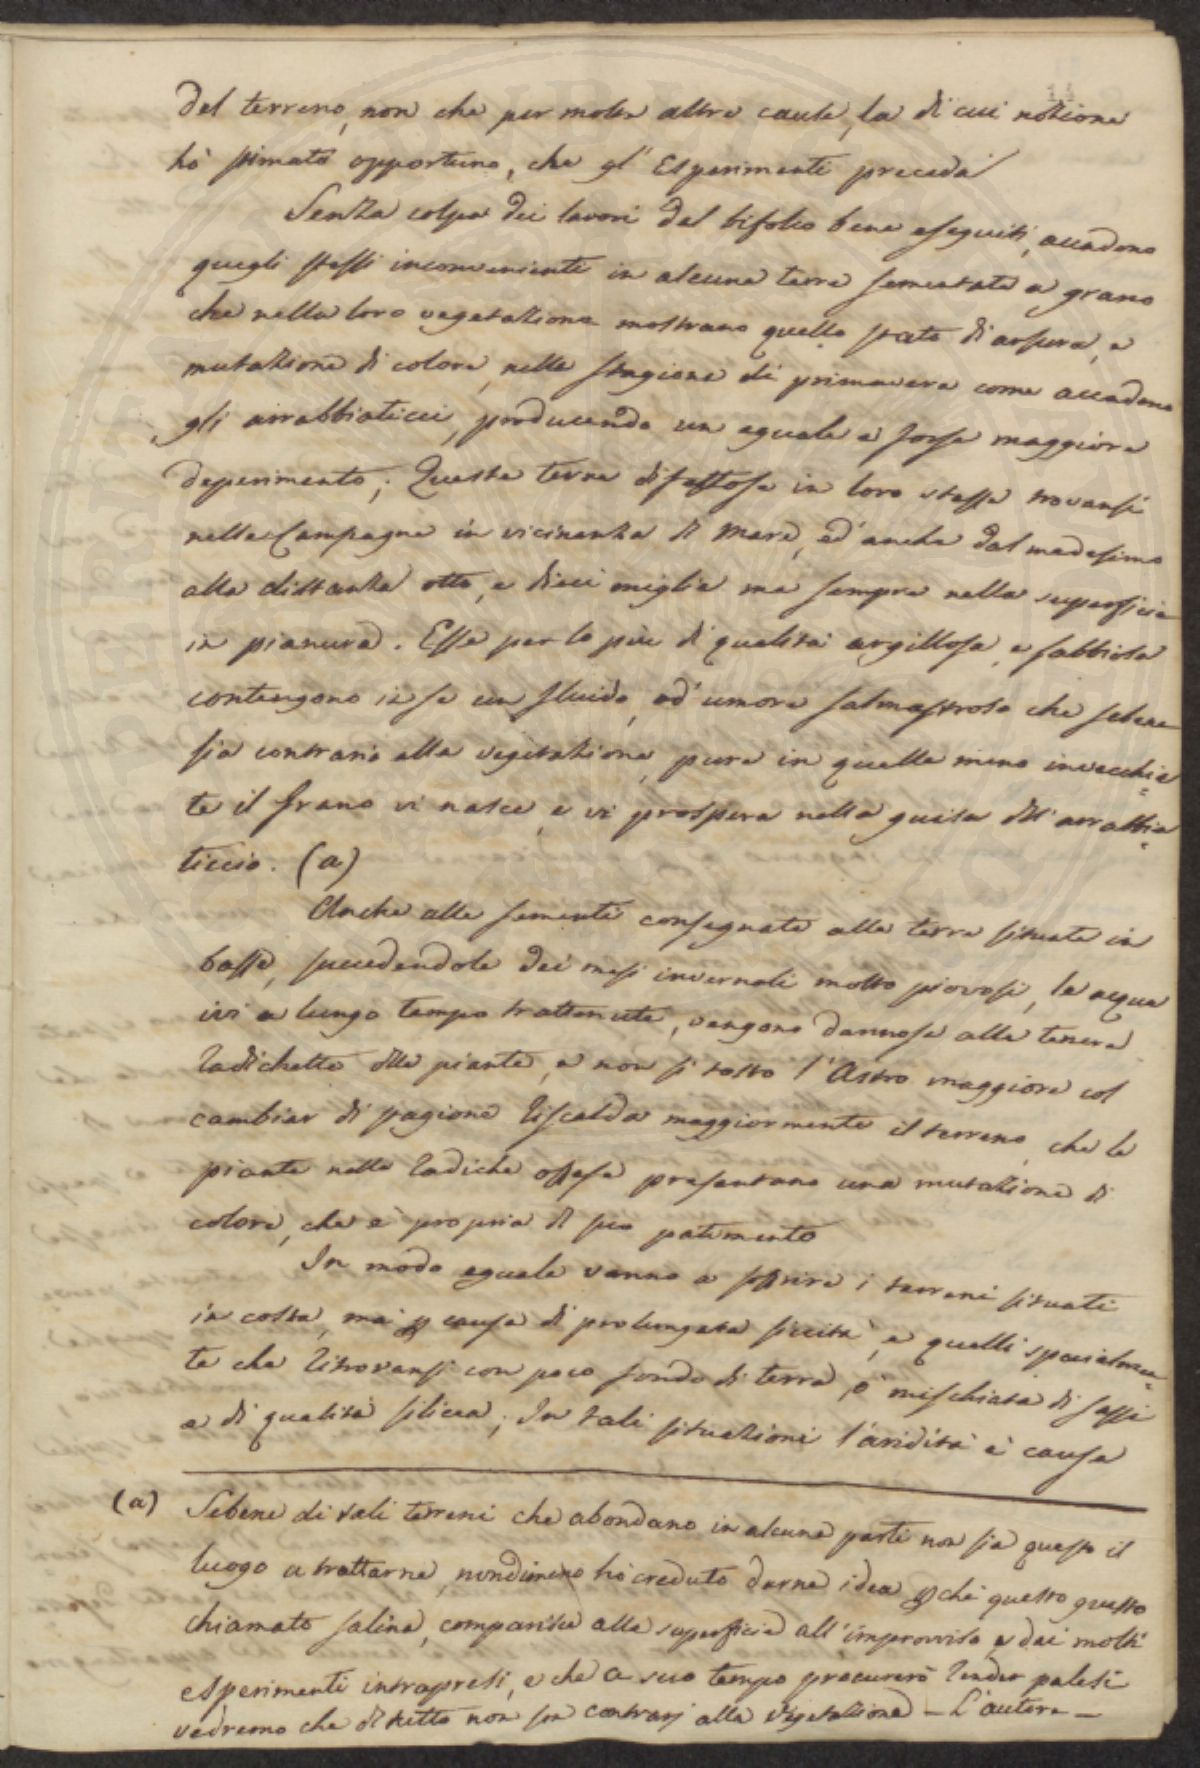 del terreno, non che per molte altre cause, la di cui nozione
hò stimato opportuno, che gl' Esperimenti preceda
Senza colpa dei lavori del bifolco bene eseguiti, accadono
quegli stessi inconvenienti in alcune terre sementate a grano
che nella loro vegetazione mostrano quello stato di arsura, e
mutazione di colore, nella stagione di primavera come accadono
gli arrabbiaticci, producendo un eguale e forse maggiore
deperimento; Queste terre difettose in loro stesse trovansi
nelle Campagne in vicinanza di Mare, ed' anche dal medesimo
alla distanza otto, e dieci miglia ma sempre nella superficie
in pianura. Esse per lo più di qualità argillosa, e sabbiosa
contengono in se un fluido, od' umore salmastroso che sebene
sia contrario alla vegetazione, pure in quelle meno invecchia=
te il Grano vi nasce, e vi prospera nella guisa dell'arrabbia=
ticcio. (a)
Anche alle sementi consegnate alle terre situate in
basse, succedendole dei mesi invernali molto piovosi, le acque
ivi a lungo tempo trattenute, vengono dannose alle tenere
radichette delle piante, e non si tosto l'Astro maggiore col
cambiar di stagione riscalda maggiormente il terreno, che le
piante nelle radiche offese presentano una mutazione di
colore, che è propria di suo patimento
In modo eguale vanno a soffrire i terreni situati
in costa, ma p causa di prolungata siccità, e quelli specialmen=
te che ritrovansi con poco fondo di terra, o' mischiata di sassi
e di qualità silicea; In tali situazioni l'aridità è causa
(a) Sebene di tali terreni che abondano in alcune parti non sia questo il
luogo a trattarne, nondimeno hò creduto darne idea pchè questo guasto
chiamato salino, comparisce alla superficie all'improvviso, e dai molti
esperimenti intrapresi, e che a suo tempo procurerò render palesi
vedremo che di tutto non son contrarj alla Vegetazione - L'autore -